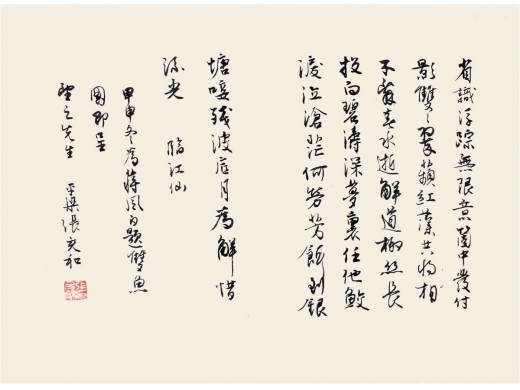 省識浮踪無限意箇中發付
影雙〻翠蘋紅藻共將相
不辭春水逝解道柳絲長
投向碧濤深夢裏任他鮫
淚泣滄茫何勞芳餌到銀
塘唼殘波底月為解惜
流光 臨江仙
甲申冬為蔣風白題雙魚
圖即呈
望之先生 張充和